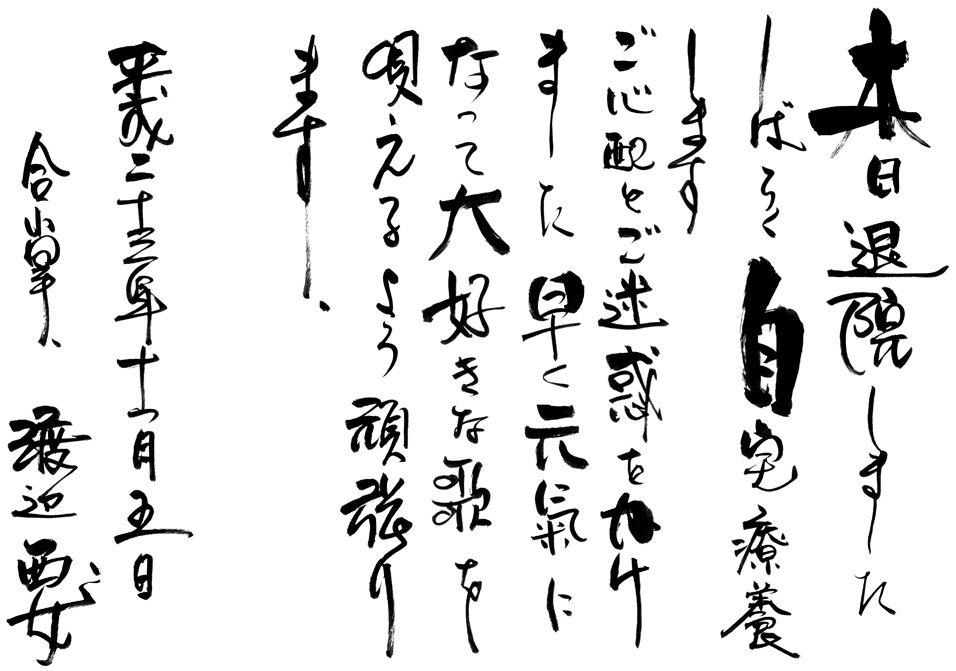 本日退院しました
しばらく自宅療養
します
ご心配とご迷惑をかけ
ました早く元氣に
なって大好きな歌を
唄えるよう頑張り
ます、
平成二十三年十一月五日
合掌、渡辺要